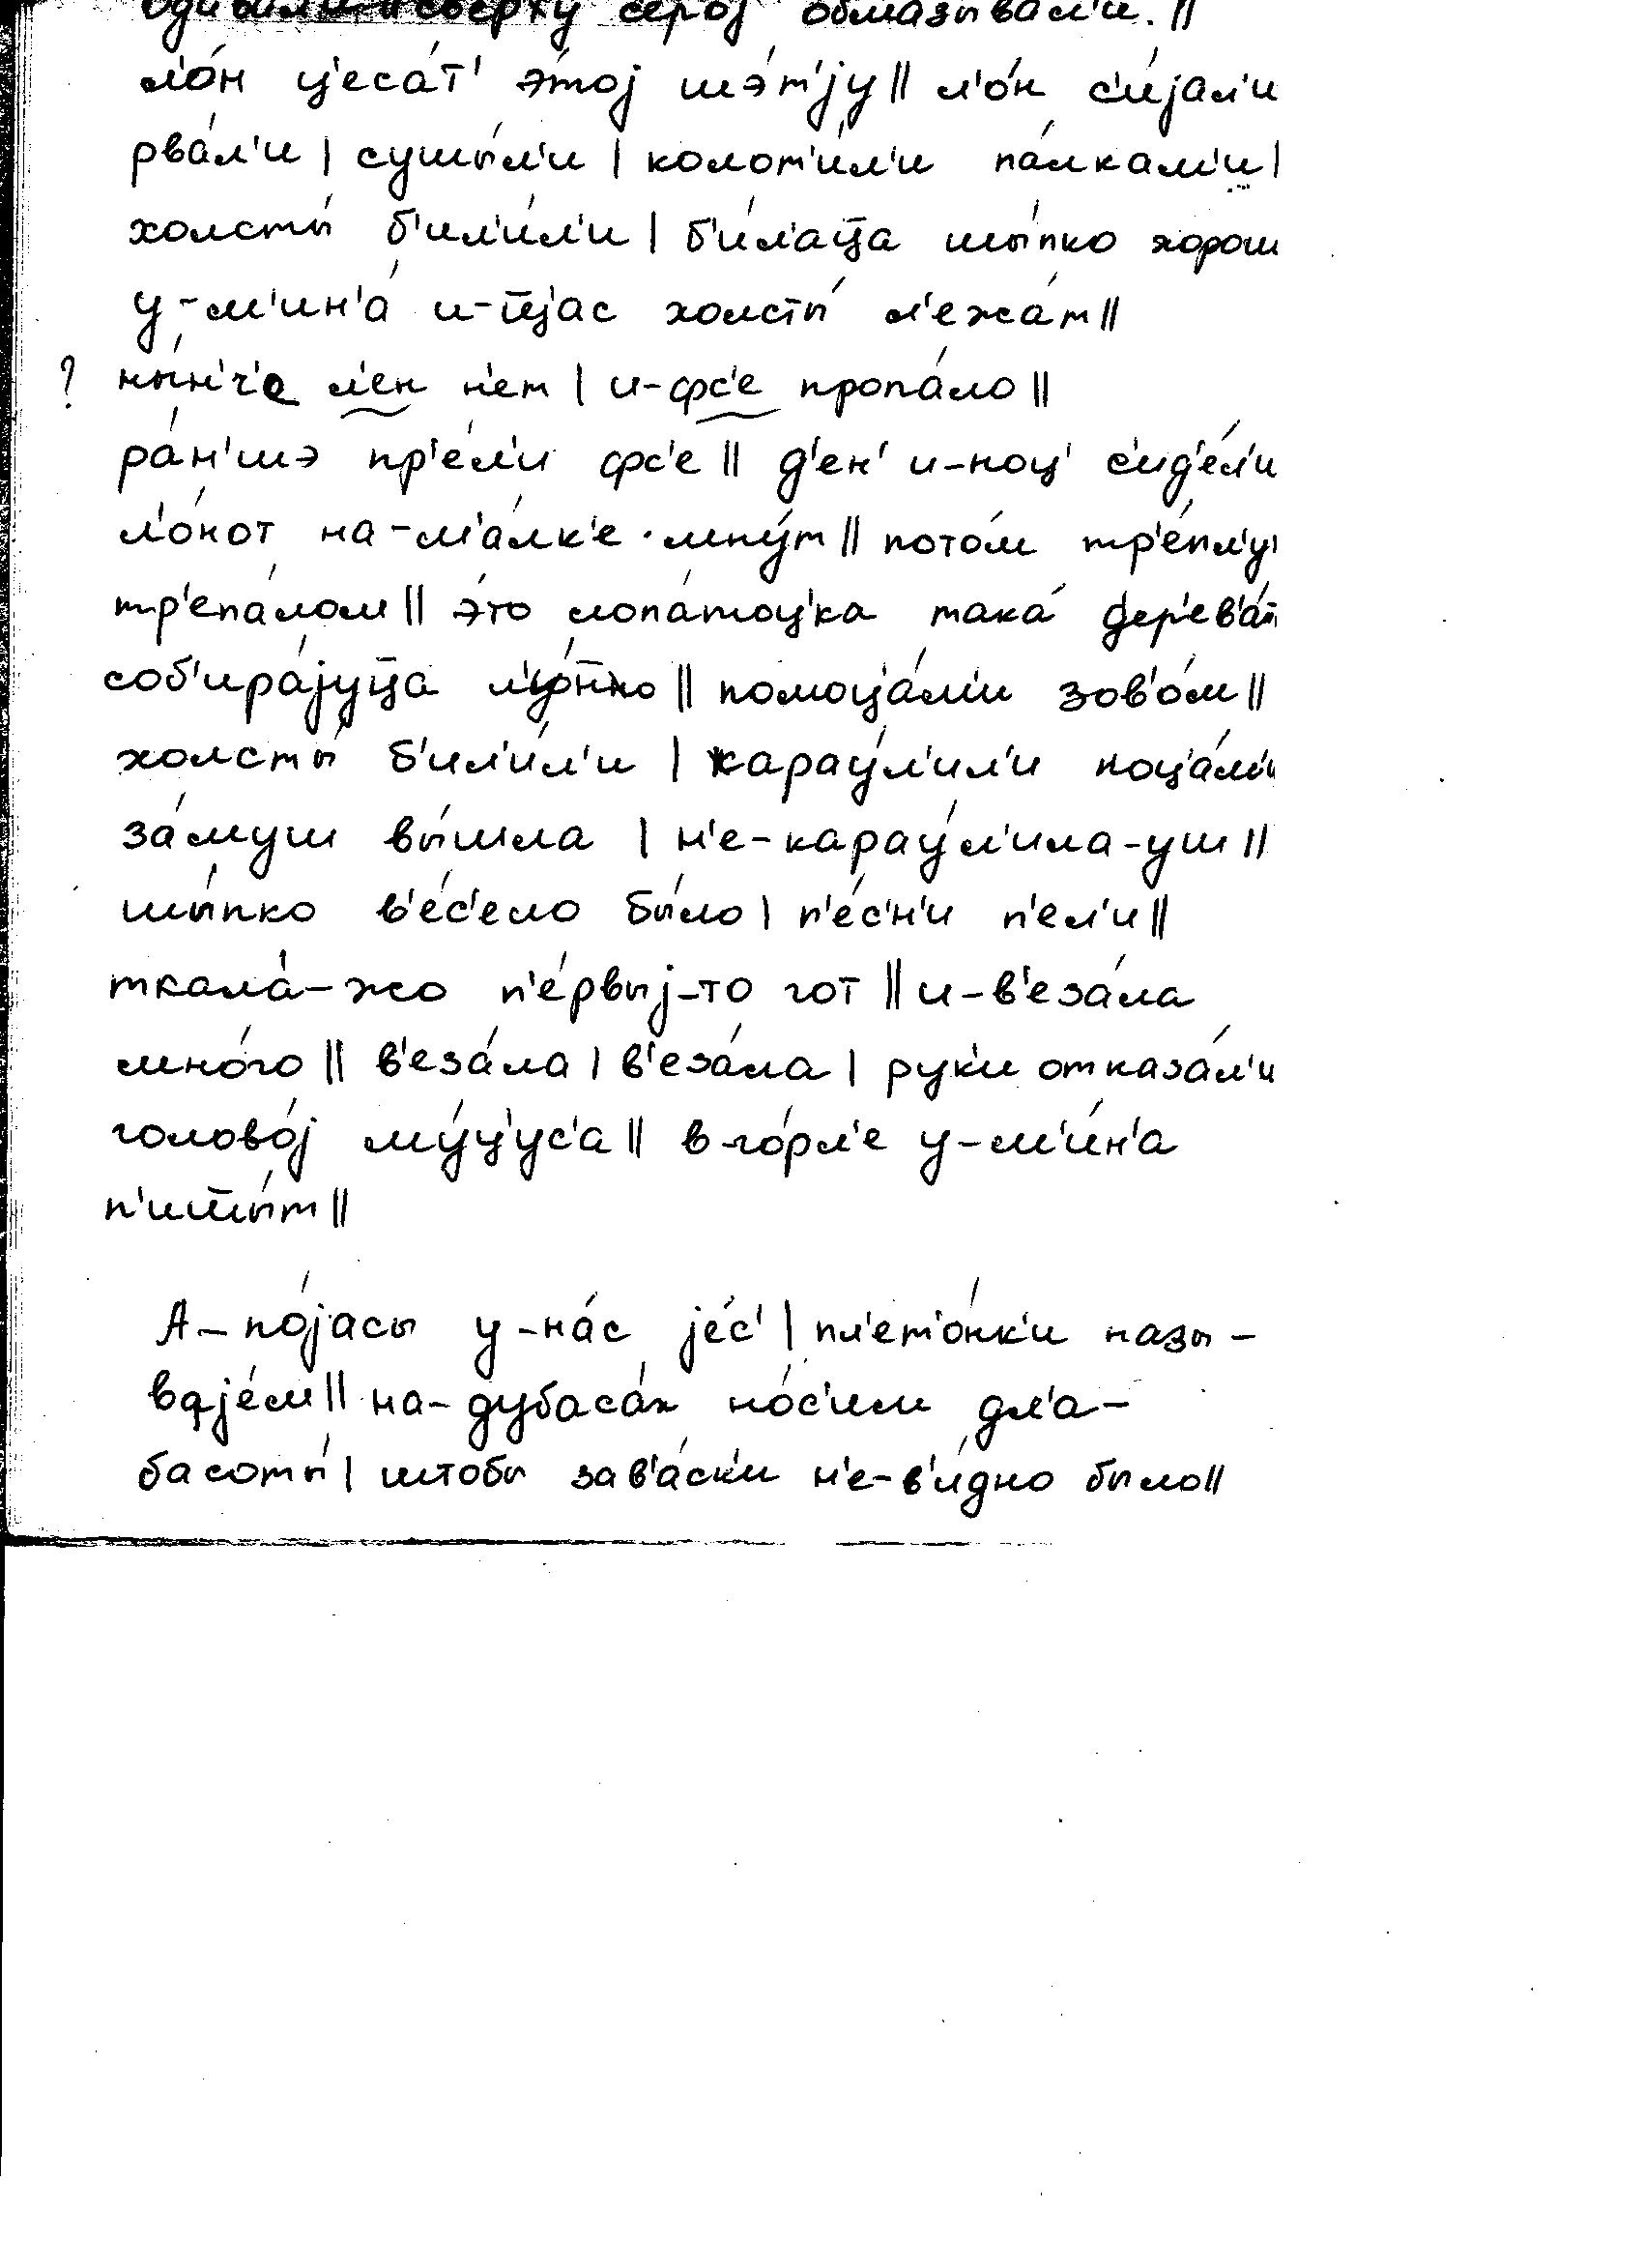 сверху серој обмазывал'и. ||
л'о́н ц'еса́т' э́тој шэ́т'јy || л'о́н с'и́јал'и
рва́л'и | сушы́л'и | колот'и́л'и па́лкам'и |
холсты́ б'ил'и́л'и | б'ил'ац̄а шы́пко хорош
у-м'ин'а́ и-т̄ц'ас холсты́ л'ежа́т ||
? ны́н'ч'е л'ен н'ет | и-фс'е пропа́ло ||
ра́н'шэ пр'е́л'и фс'е || д'ен' и-ноц' с'ид'е́л'и
л'о́нот на-м'а́лк'е мну́т || пото́м тр'е́пл'у
тр'епа́лом || э́то лопа́тоц'ка така́ дер'ев'а́
соб'ира́јуц̄а || помоц'а́м'и зов'о́м ||
холсты́ б'ил'и́л'и | карау́л'ил'и ноц'а́м'и
за́муш вы́шла | н'е-карау́л'ила-уш ||
шы́пко в'е́с'ело бы́ло | п'е́с'н'и п'ел'и ||
ткала́-жо п'е́рвыј-то гот || и-в'еза́ла
мно́го || в'еза́ла | в'еза́ла | рук'и отказа́л'и
голово́ј му́ц'ус'а || в-го́рл'е у-м'и́н'а
п'иш̄ы́т ||
А-по́јасы у-на́с је́с' | пл'ет'о́нк'и назы-
вајем || на-дубаса́х но́с'им дл'а-
басоты́ | штобы зав'а́ск'и н'е-в'и́дно было ||